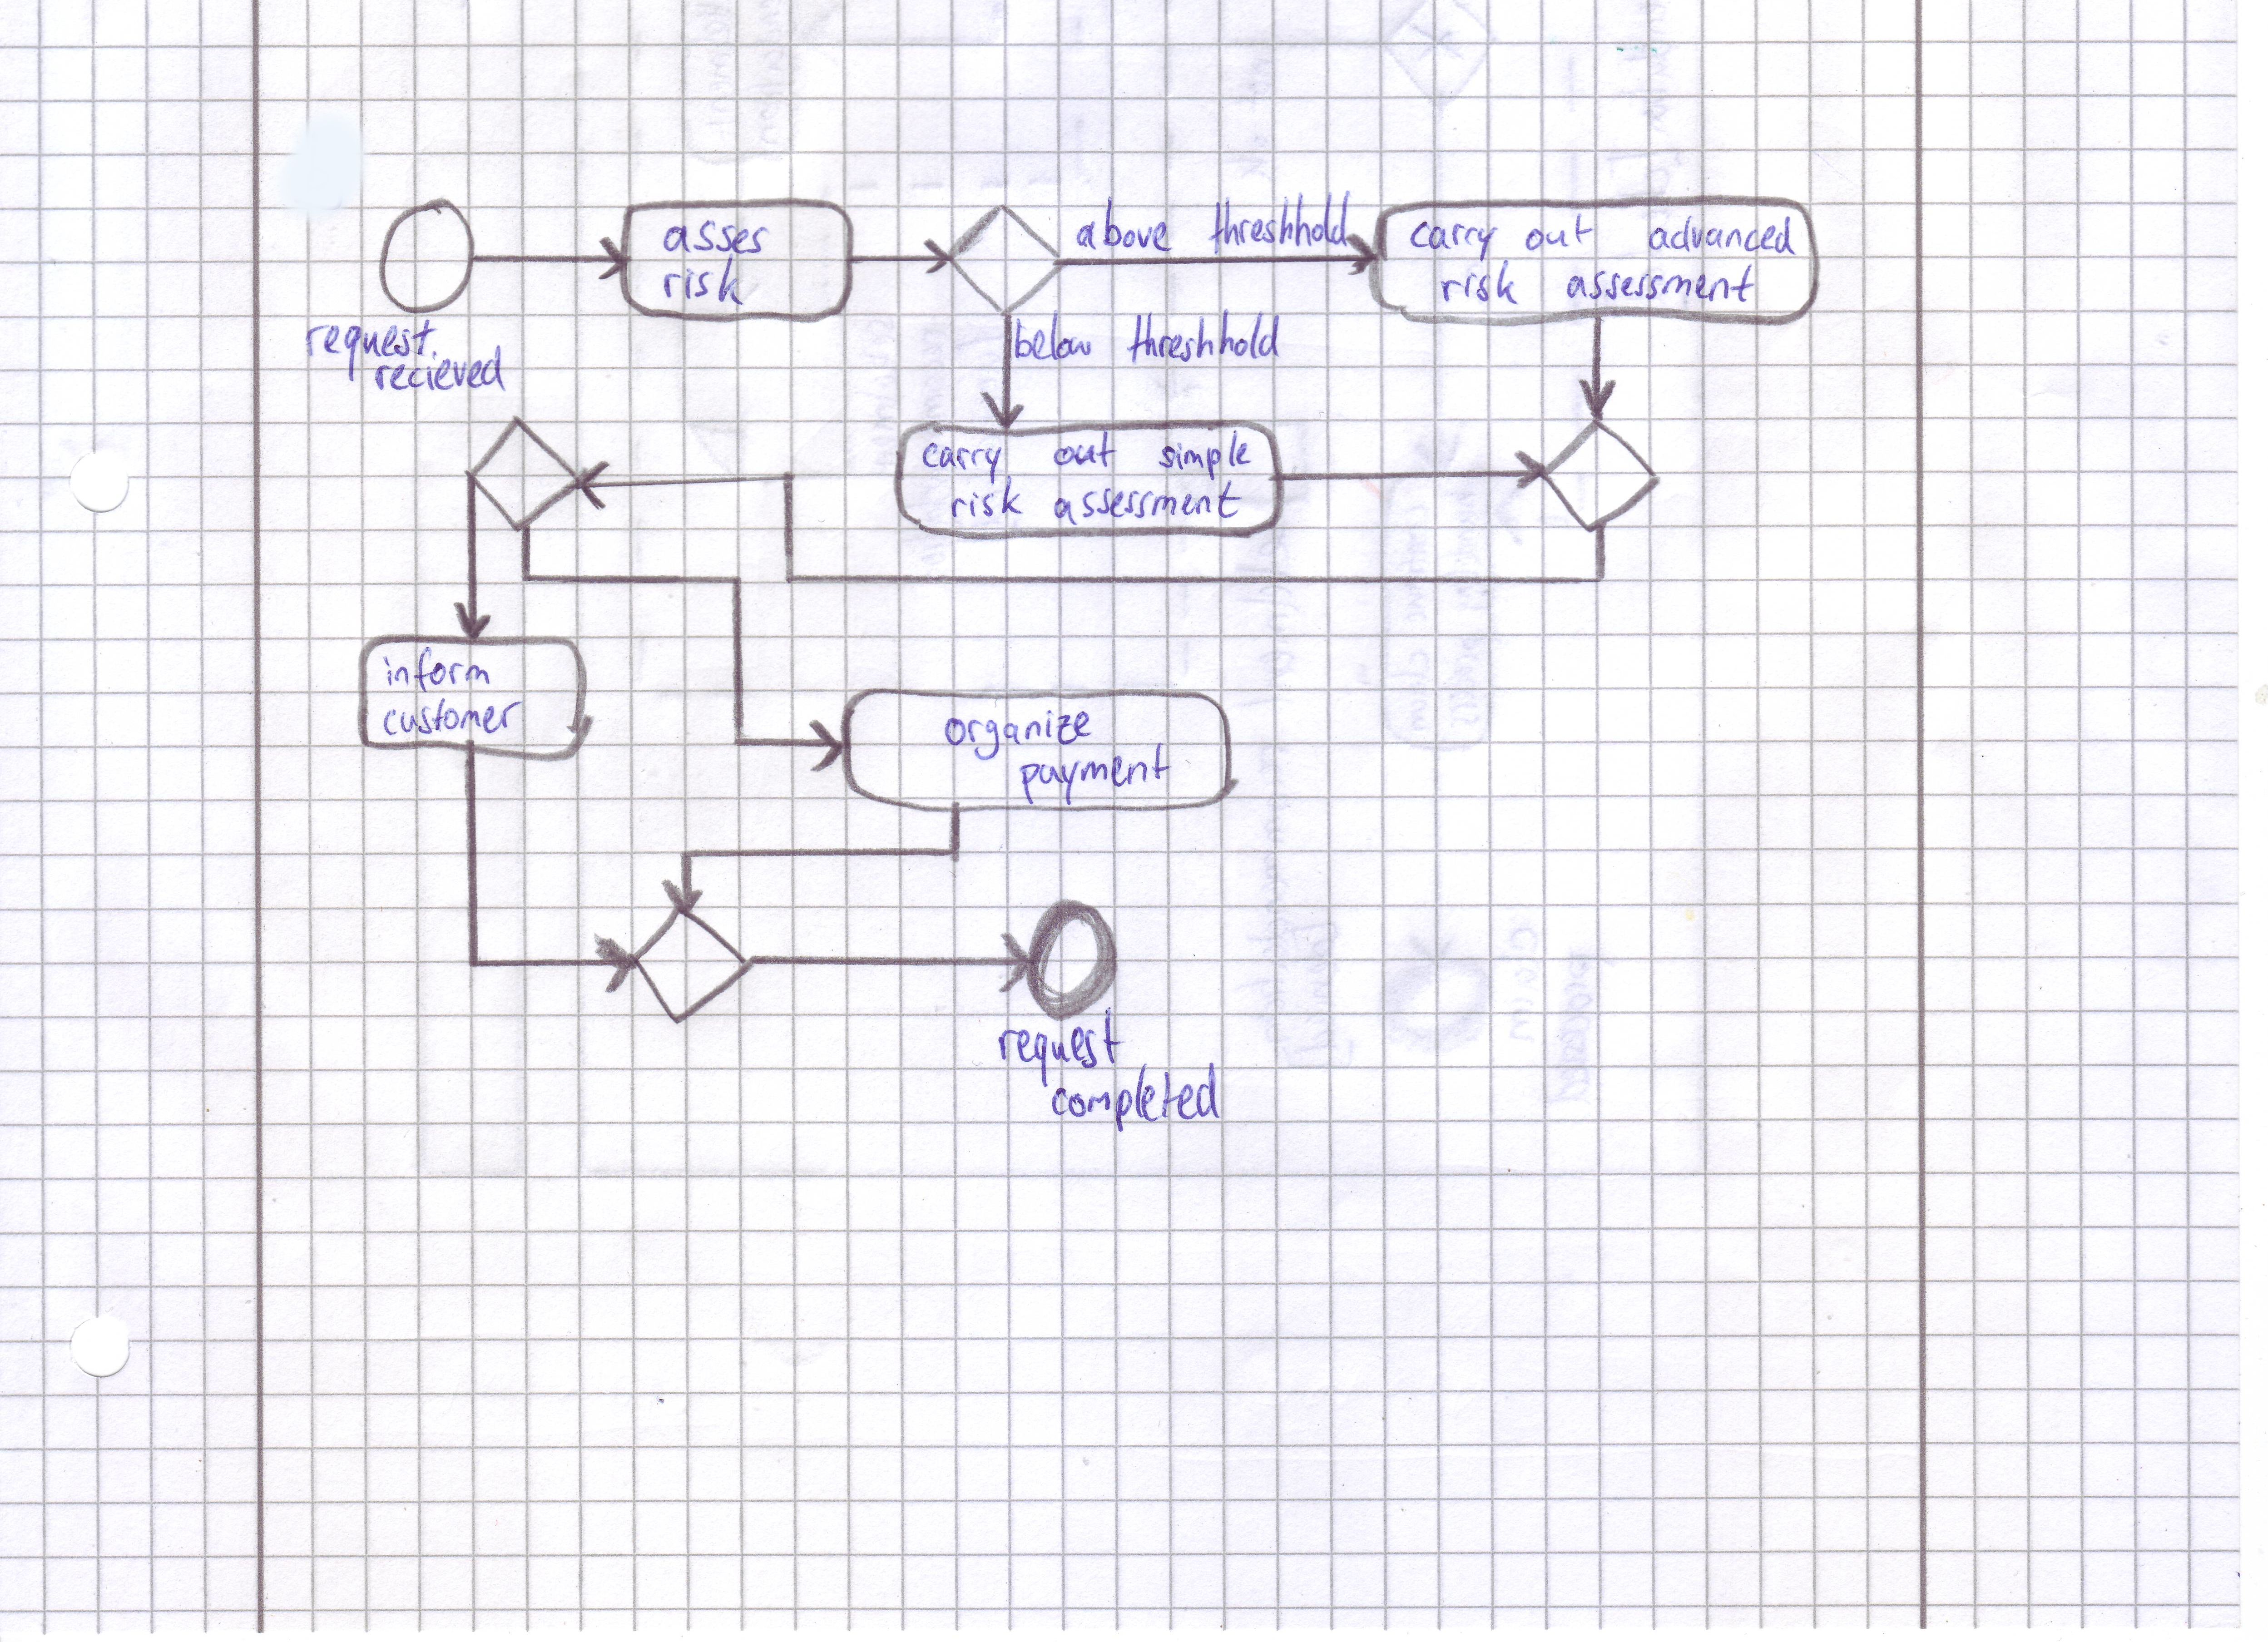 asses
risk
above threshhold
carry out advanced
risk assessment
request
recieved
below threshhold
carry out simple
risk assessment
inform
customer
organize
payment
request
completed